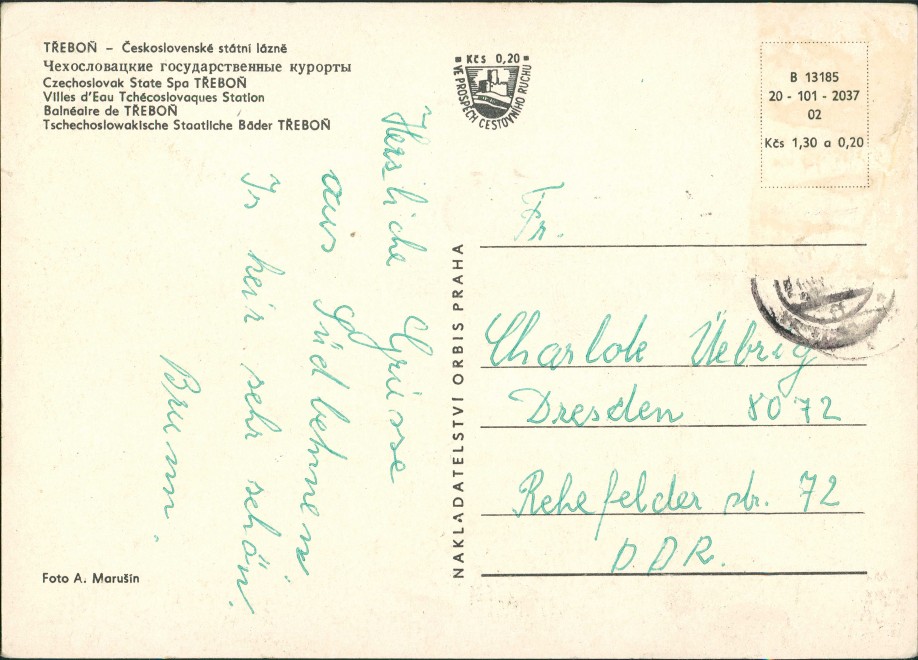 TŘEBOŇ – Československé státní lázně
Чехословацкие государственные курорты
Czechoslovak State Spa TŘEBOŇ
Villes d'Eau Tchécoslovaques Station
Balnéaire de TŘEBOŇ
Tschechoslowakische Staatliche Bäder TŘEBOŇ
Kčs 0,20
VE PROSPĚCH CESTOVNÍHO RUCHU
B 13185
20 - 101 - 2037
02
Kčs 1,30 a 0,20
Hersliche Grüsse
aus Südbehmen
Is heir sehr schön.
Brunn.
NAKLADATELSTVÍ ORBIS PRAHA
Fr.
Charlote Üebrig
Dresden 8072
Rehefelder str. 72
D.D.R.
Foto A. Marušin